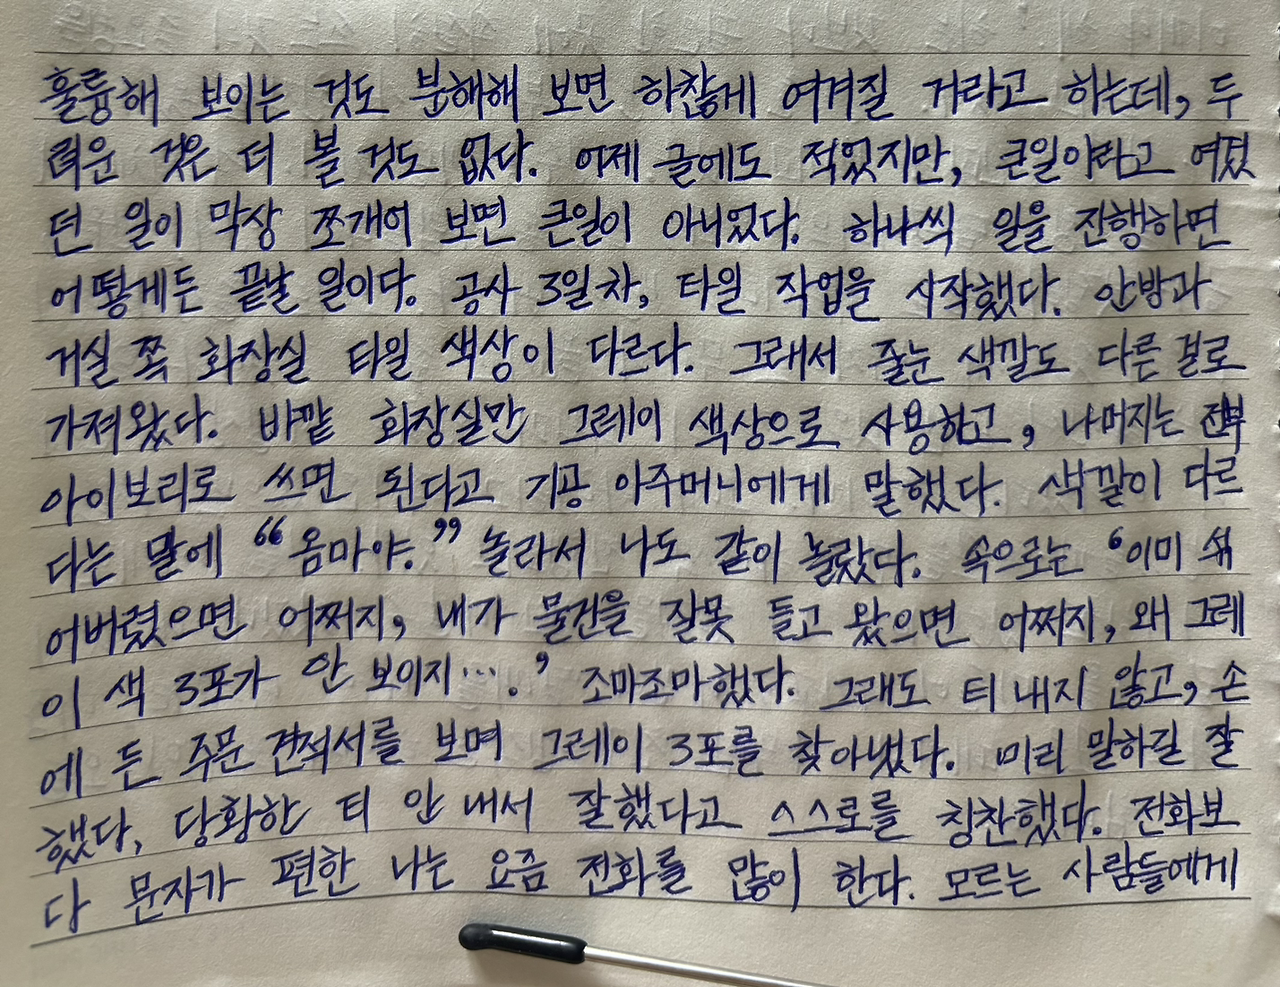 훌륭해 보이는 것도 분해해 보면 하찮게 여겨질 거라고 하는데, 두
려운 것은 더 볼 것도 없다. 어제 글에도 적었지만, 큰일이라고 여겼
던 일이 막상 쪼개어 보면 큰일이 아니었다. 하나씩 일을 진행하면
어떻게든 끝날 일이다. 공사 3일차, 타일 작업을 시작했다. 안방과
거실 쪽 화장실 타일 색상이 다르다. 그래서 줄눈 색깔도 다른 걸로
가져왔다. 바깥 화장실만 그레이 색상으로 사용하고, 나머지는 전부
아이보리로 쓰면 된다고 기공 아주머니에게 말했다. 색깔이 다르
다는 말에 “옴마야.” 놀라서 나도 같이 놀랐다. 속으로는 ‘이미 섞
어버렸으면 어쩌지, 내가 물건을 잘못 들고 왔으면 어쩌지, 왜 그레
이 색 3포가 안 보이지….’ 조마조마했다. 그래도 티 내지 않고, 손
에 든 주문 견적서를 보며 그레이 3포를 찾아냈다. 미리 말하길 잘
했다, 당황한 티 안 내서 잘했다고 스스로를 칭찬했다. 전화보
다 문자가 편한 나는 요즘 전화를 많이 한다. 모르는 사람들에게